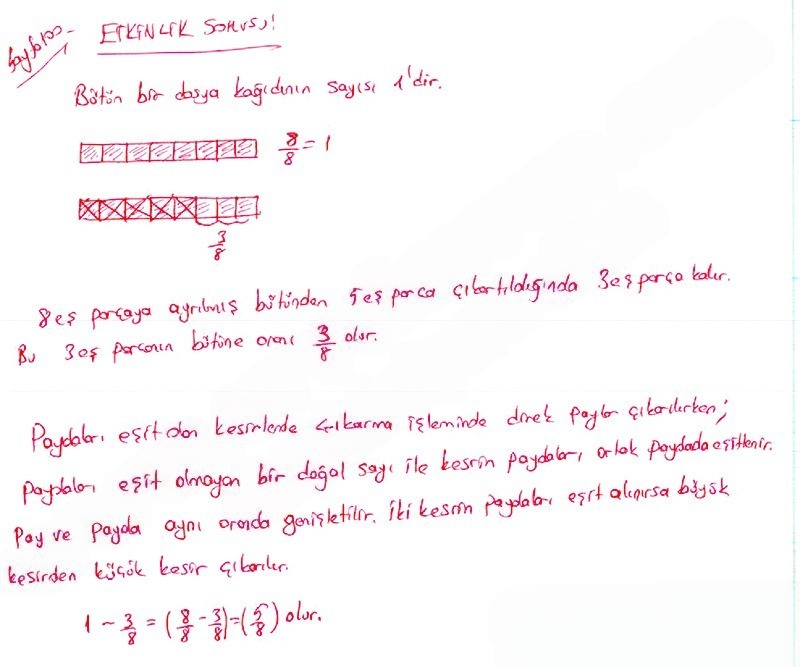 Sayfa 100-
ETKİNLİK SORUSU!
Bütün bir dosya kağıdının sayısı 1'dir.
8/8 = 1
3/8
8 eş parçaya ayrılmış bütünden 5 eş parça çıkartıldığında 3 eş parça kalır.
Bu 3 eş parçanın bütüne oranı 3/8 olur.
Paydaları eşit olan kesirlerde çıkarma işleminde direk paylar çıkarılırken;
paydaları eşit olmayan bir doğal sayı ile kesrin paydaları ortak paydada eşitlenir.
Pay ve payda aynı oranda genişletilir. İki kesrin paydaları eşit alınırsa büyük
kesirden küçük kesir çıkarılır.
1 - 3/8 = (8/8 - 3/8) = (5/8) olur.